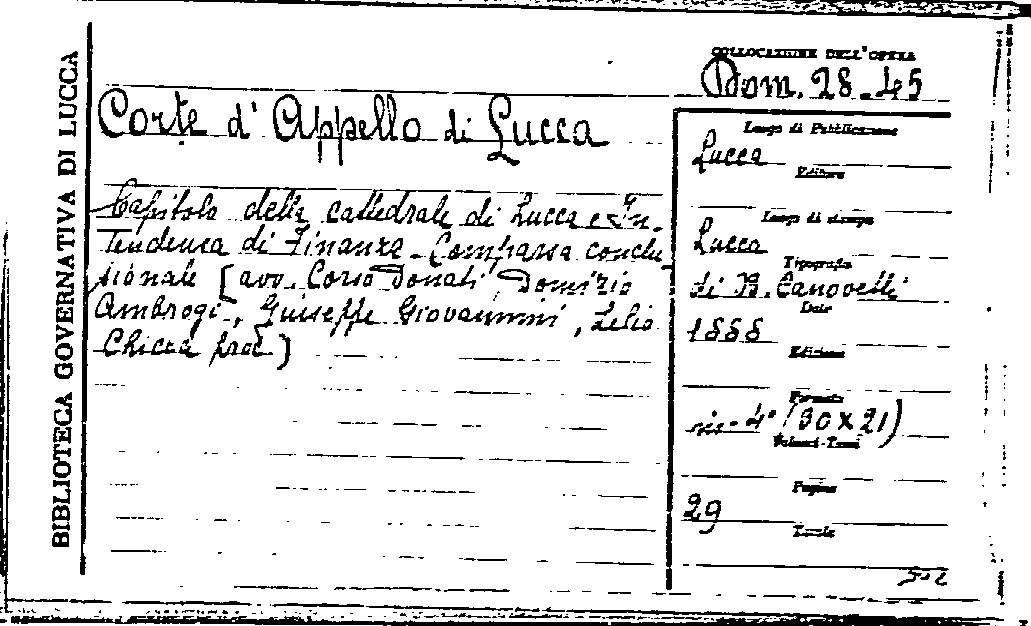 BIBLIOTECA GOVERNATIVA DI LUCCA
COLLOCAZIONE DELL'OPERA
Dom. 28.45
Corte d'Appello di Lucca
Capitolo della cattedrale di Lucca e In-
tendenza di Finanza - Comparsa conclu
sionale [avv. Corso Donati, Domizio
Ambrogi, Giuseppe Giovannini, Lelio
Chicca proc.]
Luogo di Pubblicazione
Lucca
Editore
Luogo di stampa
Lucca
Tipografia
di B. Canovetti
Data
1888
Edizione
Formato
in-4° (30 x 21)
Volumi-Tomi
Pagine
29
Tavole